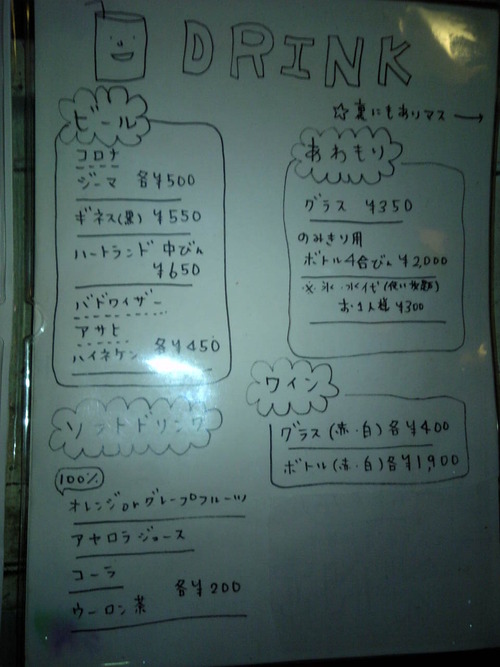 DRINK
☆裏にもありマス→
ビール
コロナ
ジーマ 各¥500
ギネス(黒) ¥550
ハートランド 中びん
¥650
バドワイザー
アサヒ
ハイネケン 各¥450
ソフトドリンク
100%
オレンジorグレープフルーツ
アセロラジュース
コーラ
ウーロン茶 各¥200
あわもり
グラス ¥350
のみきり用
ボトル4合びん ¥2,000
※氷・水代(使い放題)
お1人様 ¥300
ワイン
グラス(赤・白)各¥400
ボトル(赤・白)各¥1,900